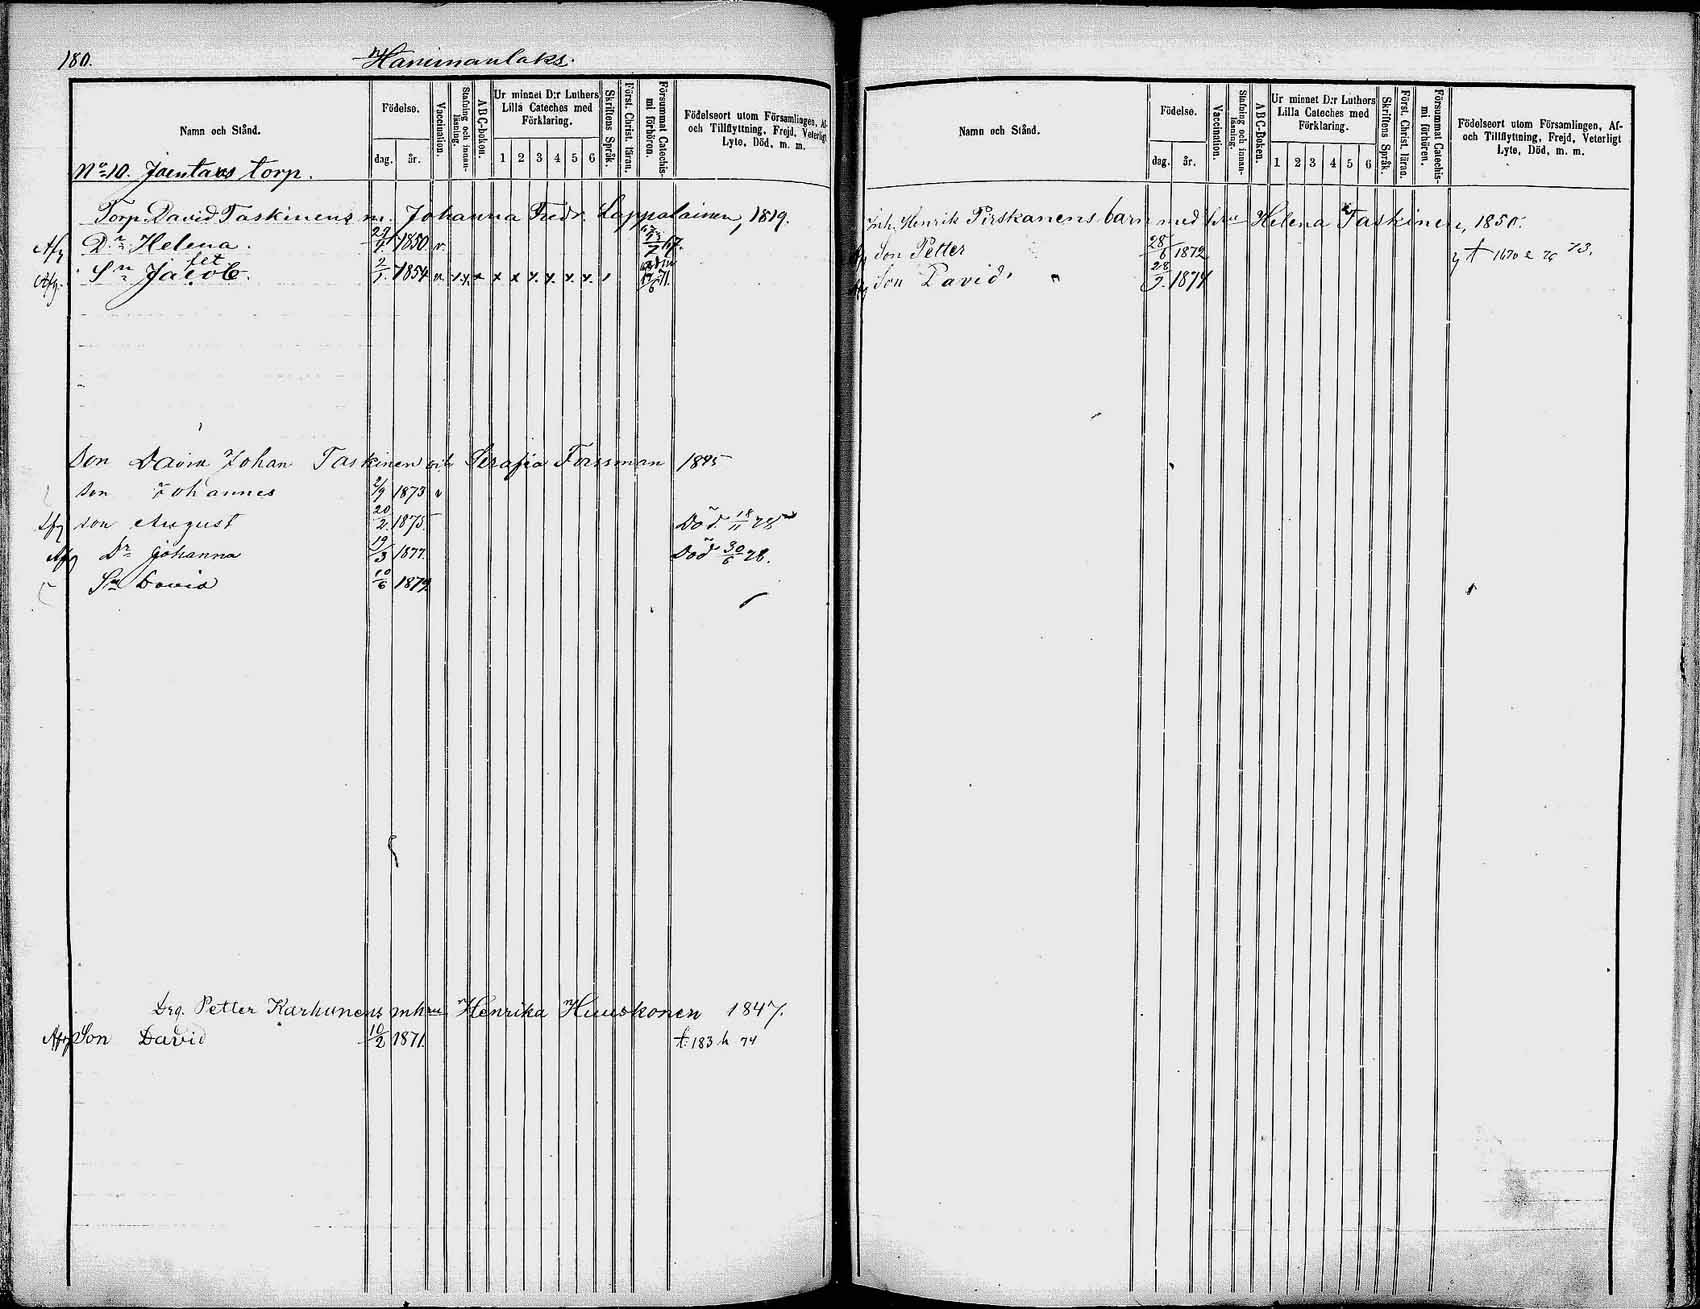 180. Hanimanlaks.
Namn och Stånd. Födelse. dag. år. Vaccination. Stafning och innanläsning. ABC-boken. Ur minnet D:r Luthers Lilla Cateches med Förklaring. 1 2 3 4 5 6 Skriftens Språk. Först. Christ. läran. Försummat Catechismi förhören. Födelseort utom Församlingen, Af- och Tillflyttning, Frejd, Veterligt Lyte, Död, m. m.
No 10. torp.
Torp. David Taskinens m. Johanna Fredr. Lappalainen, 1819.
Afg D:r Helena. 1850 v. 67.
Afg. S:n Jacob. 2/1. 1854 v. x x x x x x x x x 71.
Son David Johan Taskinen Serafia Forssman 1845
Son Johannes 2/9 1873 v
Afg son August 20/2. 1875. Död. 18/11 75
Afg Dr Johanna 19/3 1877. Död 30/6 78.
Sn David 10/6 1879
Drg. Petter Karhunens m hru Henrika Huuskonen 1847.
Afg Son David 10/2 1871. t. 183 h 74
Namn och Stånd. Födelse. dag. år. Vaccination. Stafning och innanläsning. ABC-Boken. Ur minnet D:r Luthers Lilla Cateches med Förklaring. 1 2 3 4 5 6 Skriftens Språk. Först. Christ. läran. Försummat Catechismi förhören. Födelseort utom Församlingen, Af- och Tillflyttning, Frejd, Veterligt Lyte, Död, m. m.
Inh. Henrik Pirskanens barn med hru Helena Taskinen, 1850.
Son Petter 28/6 1872 73.
Afg Son David 28/9. 1874